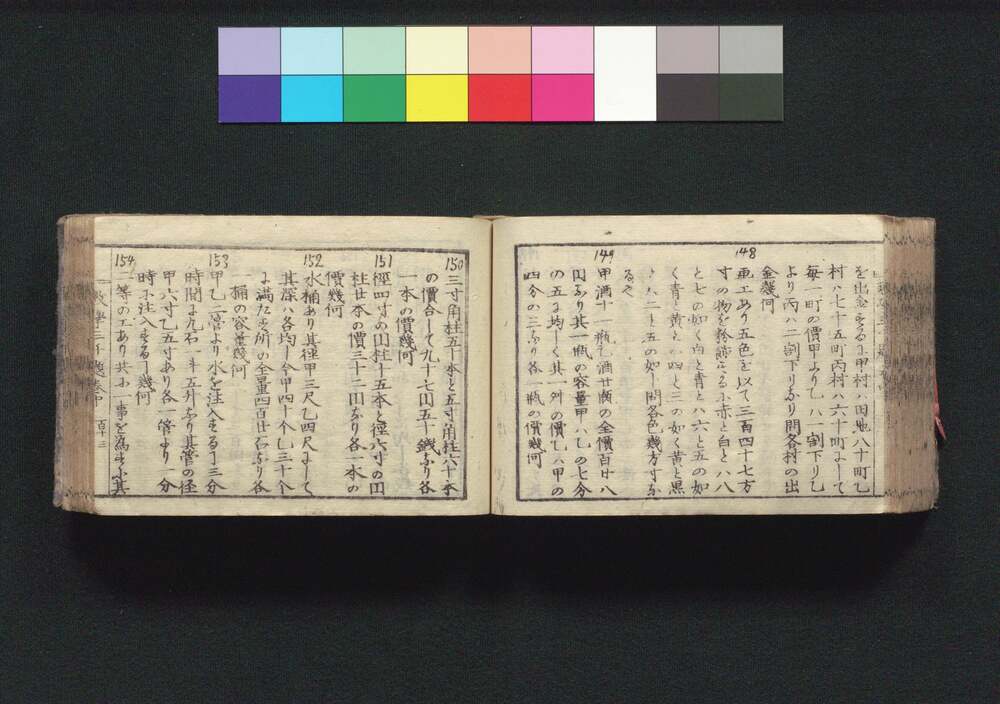 を出金するに甲村ハ田地八十町乙
村ハ七十五町丙村ハ六十町にして
毎一町の價甲より乙ハ一割下り乙
より丙ハ二割下りなり問各村の出
金幾何
148
画工あり五色を以て三百四十七方
寸の物を彩色するに赤と白とハ八
と七の如く白と青とハ六と五の如
く青と黄とハ四と三の如く黄と黒
とハ二と五の如し問各色幾方寸な
るや
149
甲酒十一瓶乙酒廿瓶の全價百廿八
円なり其一瓶の容量甲ハ乙の七分
の五に均しく其一升の價乙ハ甲の
四分の三なり各一瓶の價幾何
150
三寸角柱五十本と五寸角柱六十本
の價合して九十七円五十錢なり各
一本の價幾何
151
徑四寸の円柱十五本と徑六寸の円
柱廿本の價三十二円なり各一本の
價幾何
152
水桶あり其徑甲三尺乙四尺にして
其深ハ各均し今甲四十个乙三十个
に満たす所の全量四百廿石なり各
一桶の容量幾何
153
甲乙二管より水を注入するに三分
時間に九石一斗五升なり其管の徑
甲ハ六寸乙五寸あり各一管より一分
時に注入する事幾何
154
二等の工あり共に一事を為すに其
数學三千題巻中
百十三